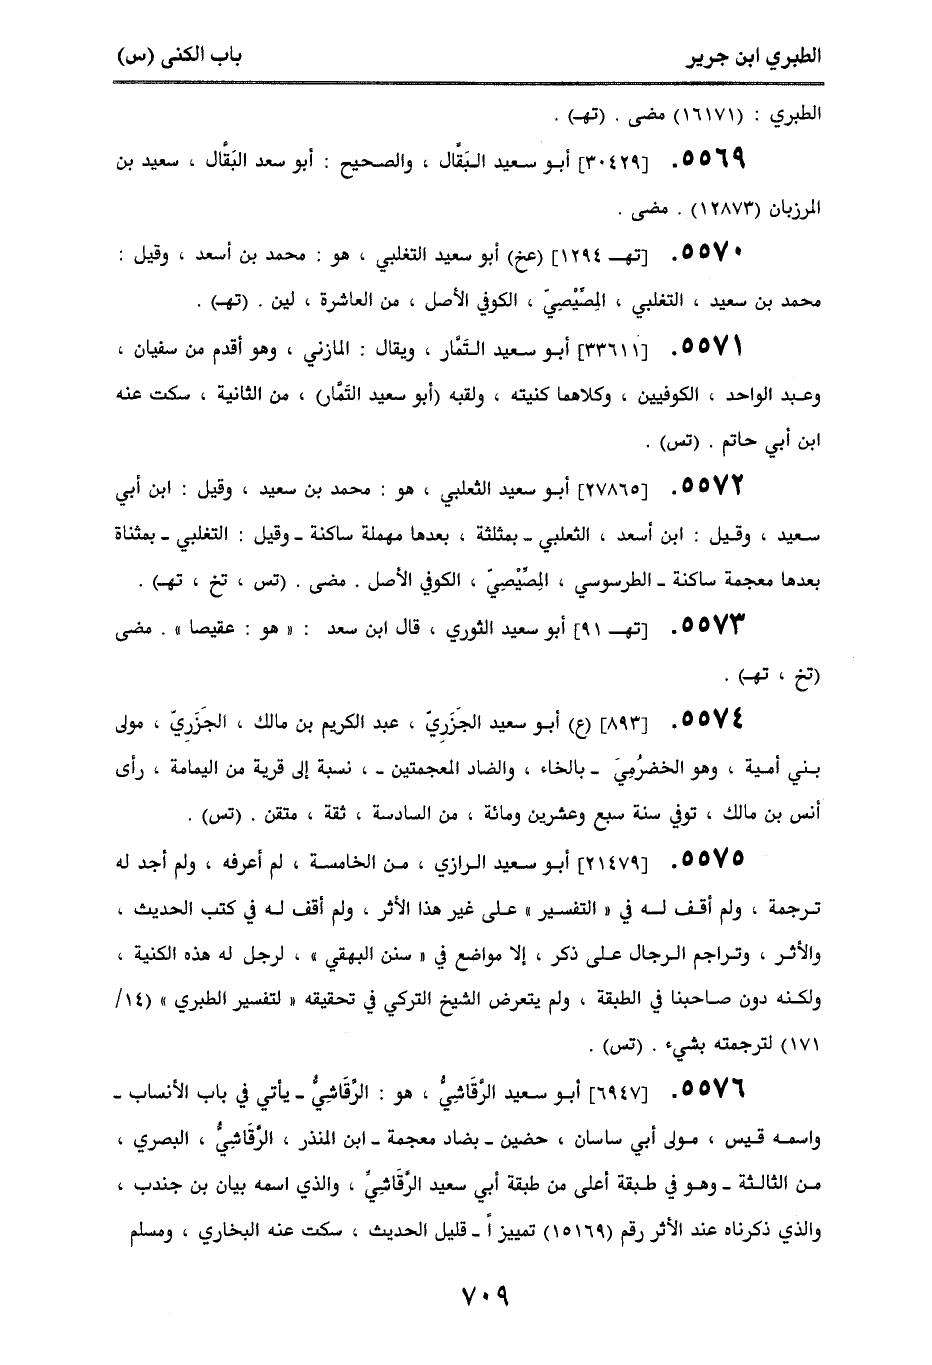 الطبري ابن جرير
باب الكنى (س)
الطبري : (١٦١٧١) مضى . (تهـ) .
٥٥٦٩. [٣٠٤٢٩] أبو سعيد البَقَّال ، والصحيح : أبو سعد البَقَّال ، سعيد بن
المرزبان (١٢٨٧٣) . مضى .
٥٥٧٠. [تهـ ١٢٩٤] (عخ) أبو سعيد التغلبي ، هو : محمد بن أسعد ، وقيل :
محمد بن سعيد ، التغلبي ، المِصِّيْصِيّ ، الكوفي الأصل ، من العاشرة ، لين . (تهـ) .
٥٥٧١. [٣٣٦١١] أبو سعيد التَمَّار ، ويقال : المازني ، وهو أقدم من سفيان ،
وعبد الواحد ، الكوفيين ، وكلاهما كنيته ، ولقبه (أبو سعيد التَمَّار) ، من الثانية ، سكت عنه
ابن أبي حاتم . (تس) .
٥٥٧٢. [٢٧٨٦٥] أبو سعيد الثعلبي ، هو : محمد بن سعيد ، وقيل : ابن أبي
سعيد ، وقيل : ابن أسعد ، الثعلبي ـ بمثلثة ، بعدها مهملة ساكنة ـ وقيل : التغلبي ـ بمثناة
بعدها معجمة ساكنة ـ الطرسوسي ، المِصِّيْصِيّ ، الكوفي الأصل . مضى . (تس ، تخ ، تهـ) .
٥٥٧٣. [تهـ ٩١] أبو سعيد الثوري ، قال ابن سعد : « هو : عقيصا » . مضى
(تخ ، تهـ) .
٥٥٧٤. [٨٩٣] (ع) أبو سعيد الجَزَرِيّ ، عبد الكريم بن مالك ، الجَزَرِيّ ، مولى
بني أمية ، وهو الخضرُمِيَ ـ بالخاء ، والضاد المعجمتين ـ ، نسبة إلى قرية من اليمامة ، رأى
أنس بن مالك ، توفي سنة سبع وعشرين ومائة ، من السادسة ، ثقة ، متقن . (تس) .
٥٥٧٥. [٢١٤٧٩] أبو سعيد الرازي ، من الخامسة ، لم أعرفه ، ولم أجد له
ترجمة ، ولم أقف له في « التفسير » على غير هذا الأثر ، ولم أقف له في كتب الحديث ،
والأثر ، وتراجم الرجال على ذكر ، إلا مواضع في « سنن البهقي » ، لرجل له هذه الكنية ،
ولكنه دون صاحبنا في الطبقة ، ولم يتعرض الشيخ التركي في تحقيقه « لتفسير الطبري » (١٤/
١٧١) لترجمته بشيء . (تس) .
٥٥٧٦. [٦٩٤٧] أبو سعيد الرَّقَاشِيُّ ، هو : الرَّقَاشِيُّ ـ يأتي في باب الأنساب ـ
واسمه قيس ، مولى أبي ساسان ، حضين ـ بضاد معجمة ـ ابن المنذر ، الرَّقَاشِيُّ ، البصري ،
من الثالثة ـ وهو في طبقة أعلى من طبقة أبي سعيد الرَّقَاشِيِّ ، والذي اسمه بيان بن جندب ،
والذي ذكرناه عند الأثر رقم (١٥١٦٩) تمييز أً ـ قليل الحديث ، سكت عنه البخاري ، ومسلم
٧٠٩